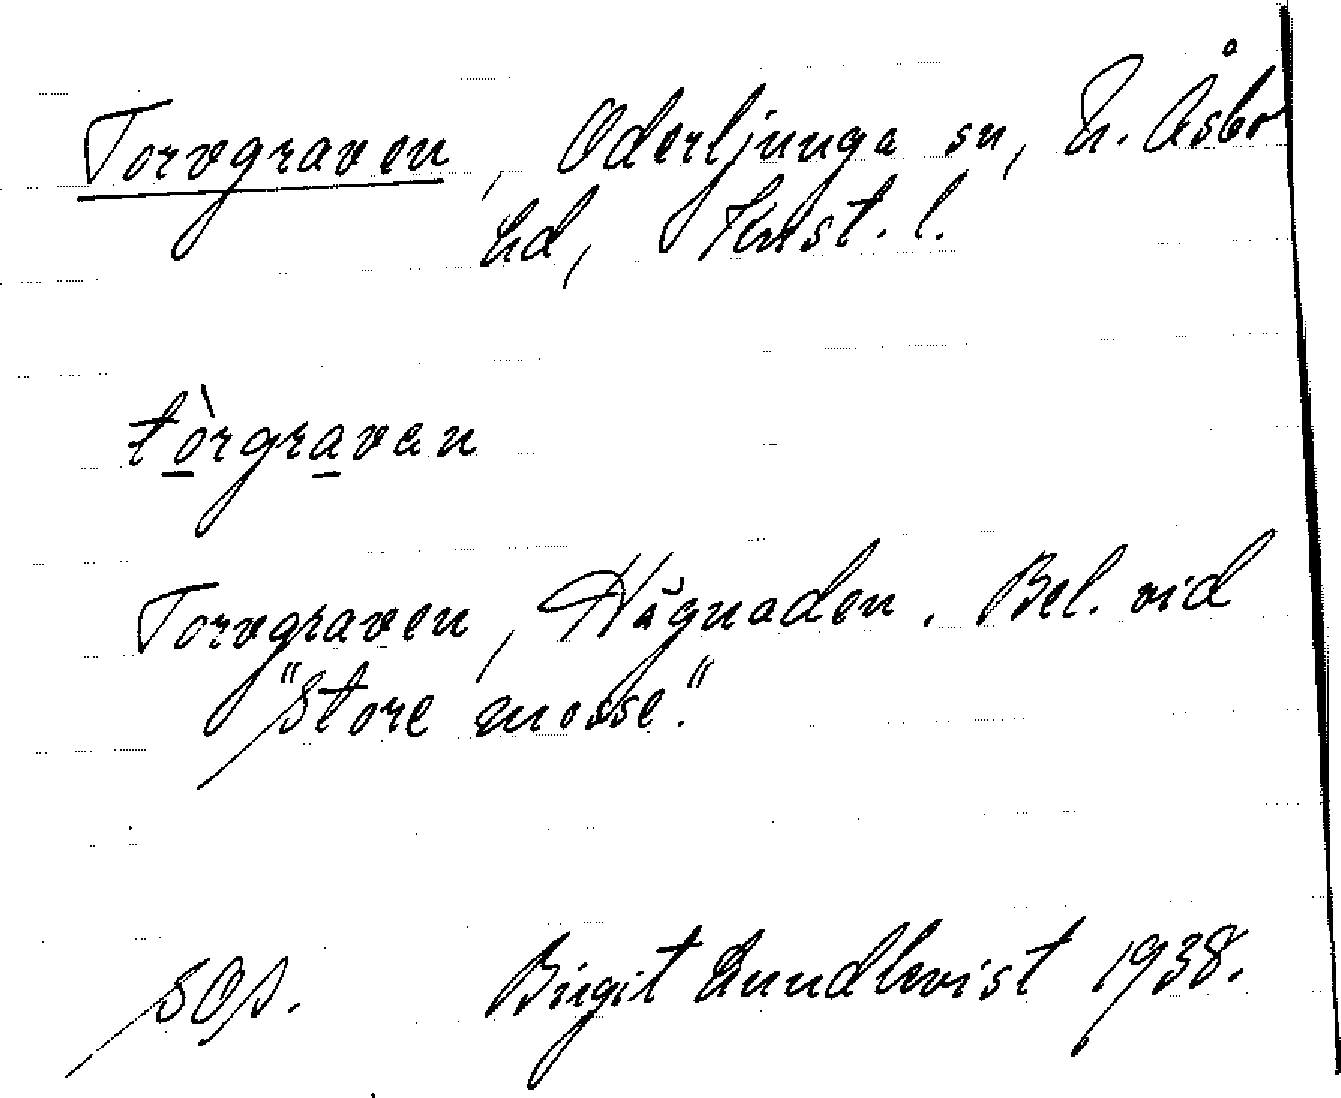 Torvgraven, Oderljunga sn, N. Åsbo
hd, Krist. l.
tòrgravan
Torvgraven, Hägnaden. Bel. vid
"Store mosse."
SOA.
Birgit Lundkvist 1938.